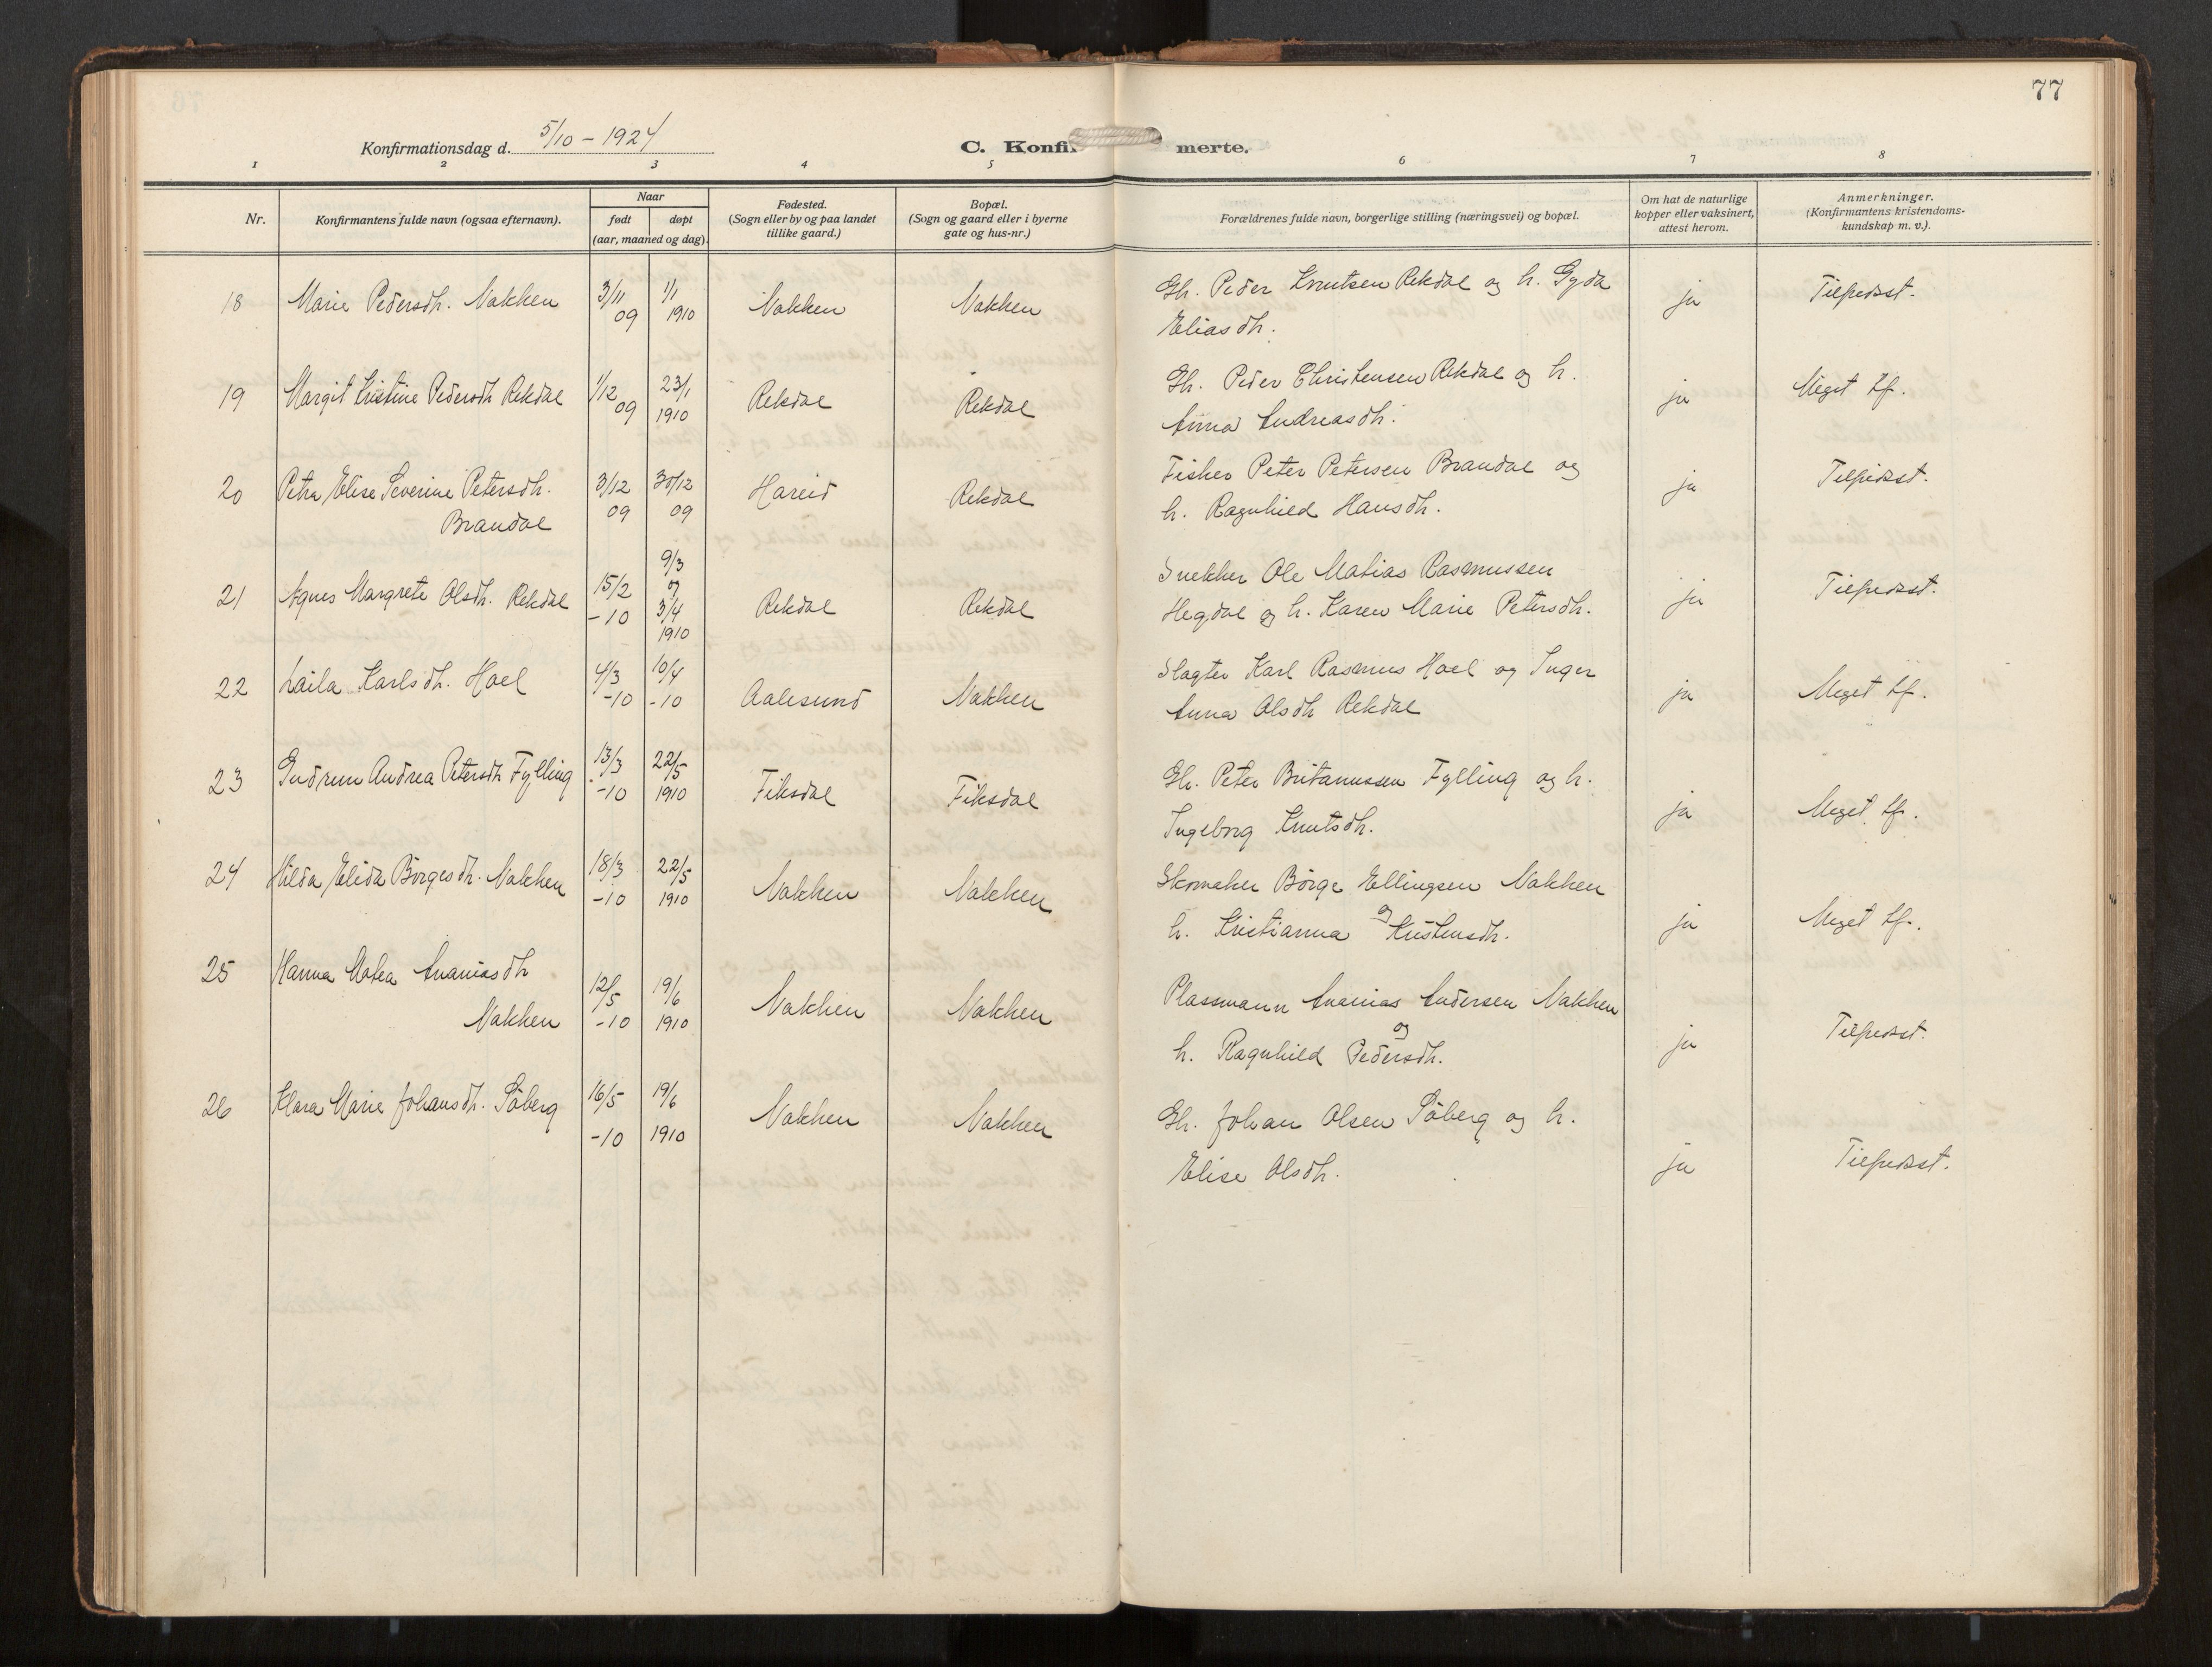 77
Konfirmationsdag d. 5/10 - 1924
C. Konfirmerte.
1 2 3 4 5 6 7 8
Nr.
Konfirmantens fulde navn (ogsaa efternavn).
Naar
født døpt
(aar, maaned og dag).
Fødested.
(Sogn eller by og paa landet
tillike gaard.)
Bopæl.
(Sogn og gaard eller i byerne
gate og hus-nr.)
Forældrenes fulde navn, borgerlige stilling (næringsvei) og bopæl.
Om hat de naturlige
kopper eller vaksinert,
attest herom.
Anmerkninger.
(Konfirmantens kristendoms-
kundskap m. v.).
18 Marie Pedersdh. Nakken 3/11 09 1/1 1910 Nakken Nakken Gb. Peder Knutsen Rekdal og h. Gyda
Eliasdh. ja Tilfredsst.
19 Margit Kristine Pedersdh Rekdal 1/12 09 23/1 1910 Rekdal Rekdal Gb. Peder Christensen Rekdal og h.
Anna Andreasdh. ja Meget tf.
20 Petra Elise Severine Petersdh.
Brandal 3/12 09 30/12 09 Hareid Rekdal Fisker Peter Petersen Brandal og
h. Ragnhild Hansdh. ja Tilfredsst.
21 Agnes Margrete Olsdh. Rekdal 15/2 -10 9/3 og 3/4 1910 Rekdal Rekdal Snekker Ole Matias Rasmussen
Hegdal og h. Karen Marie Petersdh. ja Tilfredsst.
22 Laila Karlsdh. Hoel 4/3 -10 10/4 -10 Aalesund Nakken Slagter Karl Rasmus Hoel og Inger
Anna Olsdh Rekdal ja Meget tf.
23 Gudrun Andrea Petersdh Fylling 13/3 -10 22/5 1910 Fiksdal Fiksdal Gb. Peter Britanussen Fylling og h.
Ingeborg Knutsdh. ja Meget tf.
24 Hilda Elida Børgesdh. Nakken 18/3 -10 22/5 1910 Nakken Nakken Skomaker Börge Ellingsen Nakken
og
h. Kristianna Kristensdh. ja Meget tf.
25 Hanna Matea Ananiasdh
Nakken 12/5 -10 19/6 1910 Nakken Nakken Plassmann Ananias Andersen Nakken
og
h. Ragnhild Pedersdh. ja Tilfredsst.
26 Klara Marie Johansdh. Söberg 16/5 -10 19/6 1910 Nakken Nakken Gb. Johan Olsen Söberg og h.
Elise Olsdh. ja Tilfredsst.